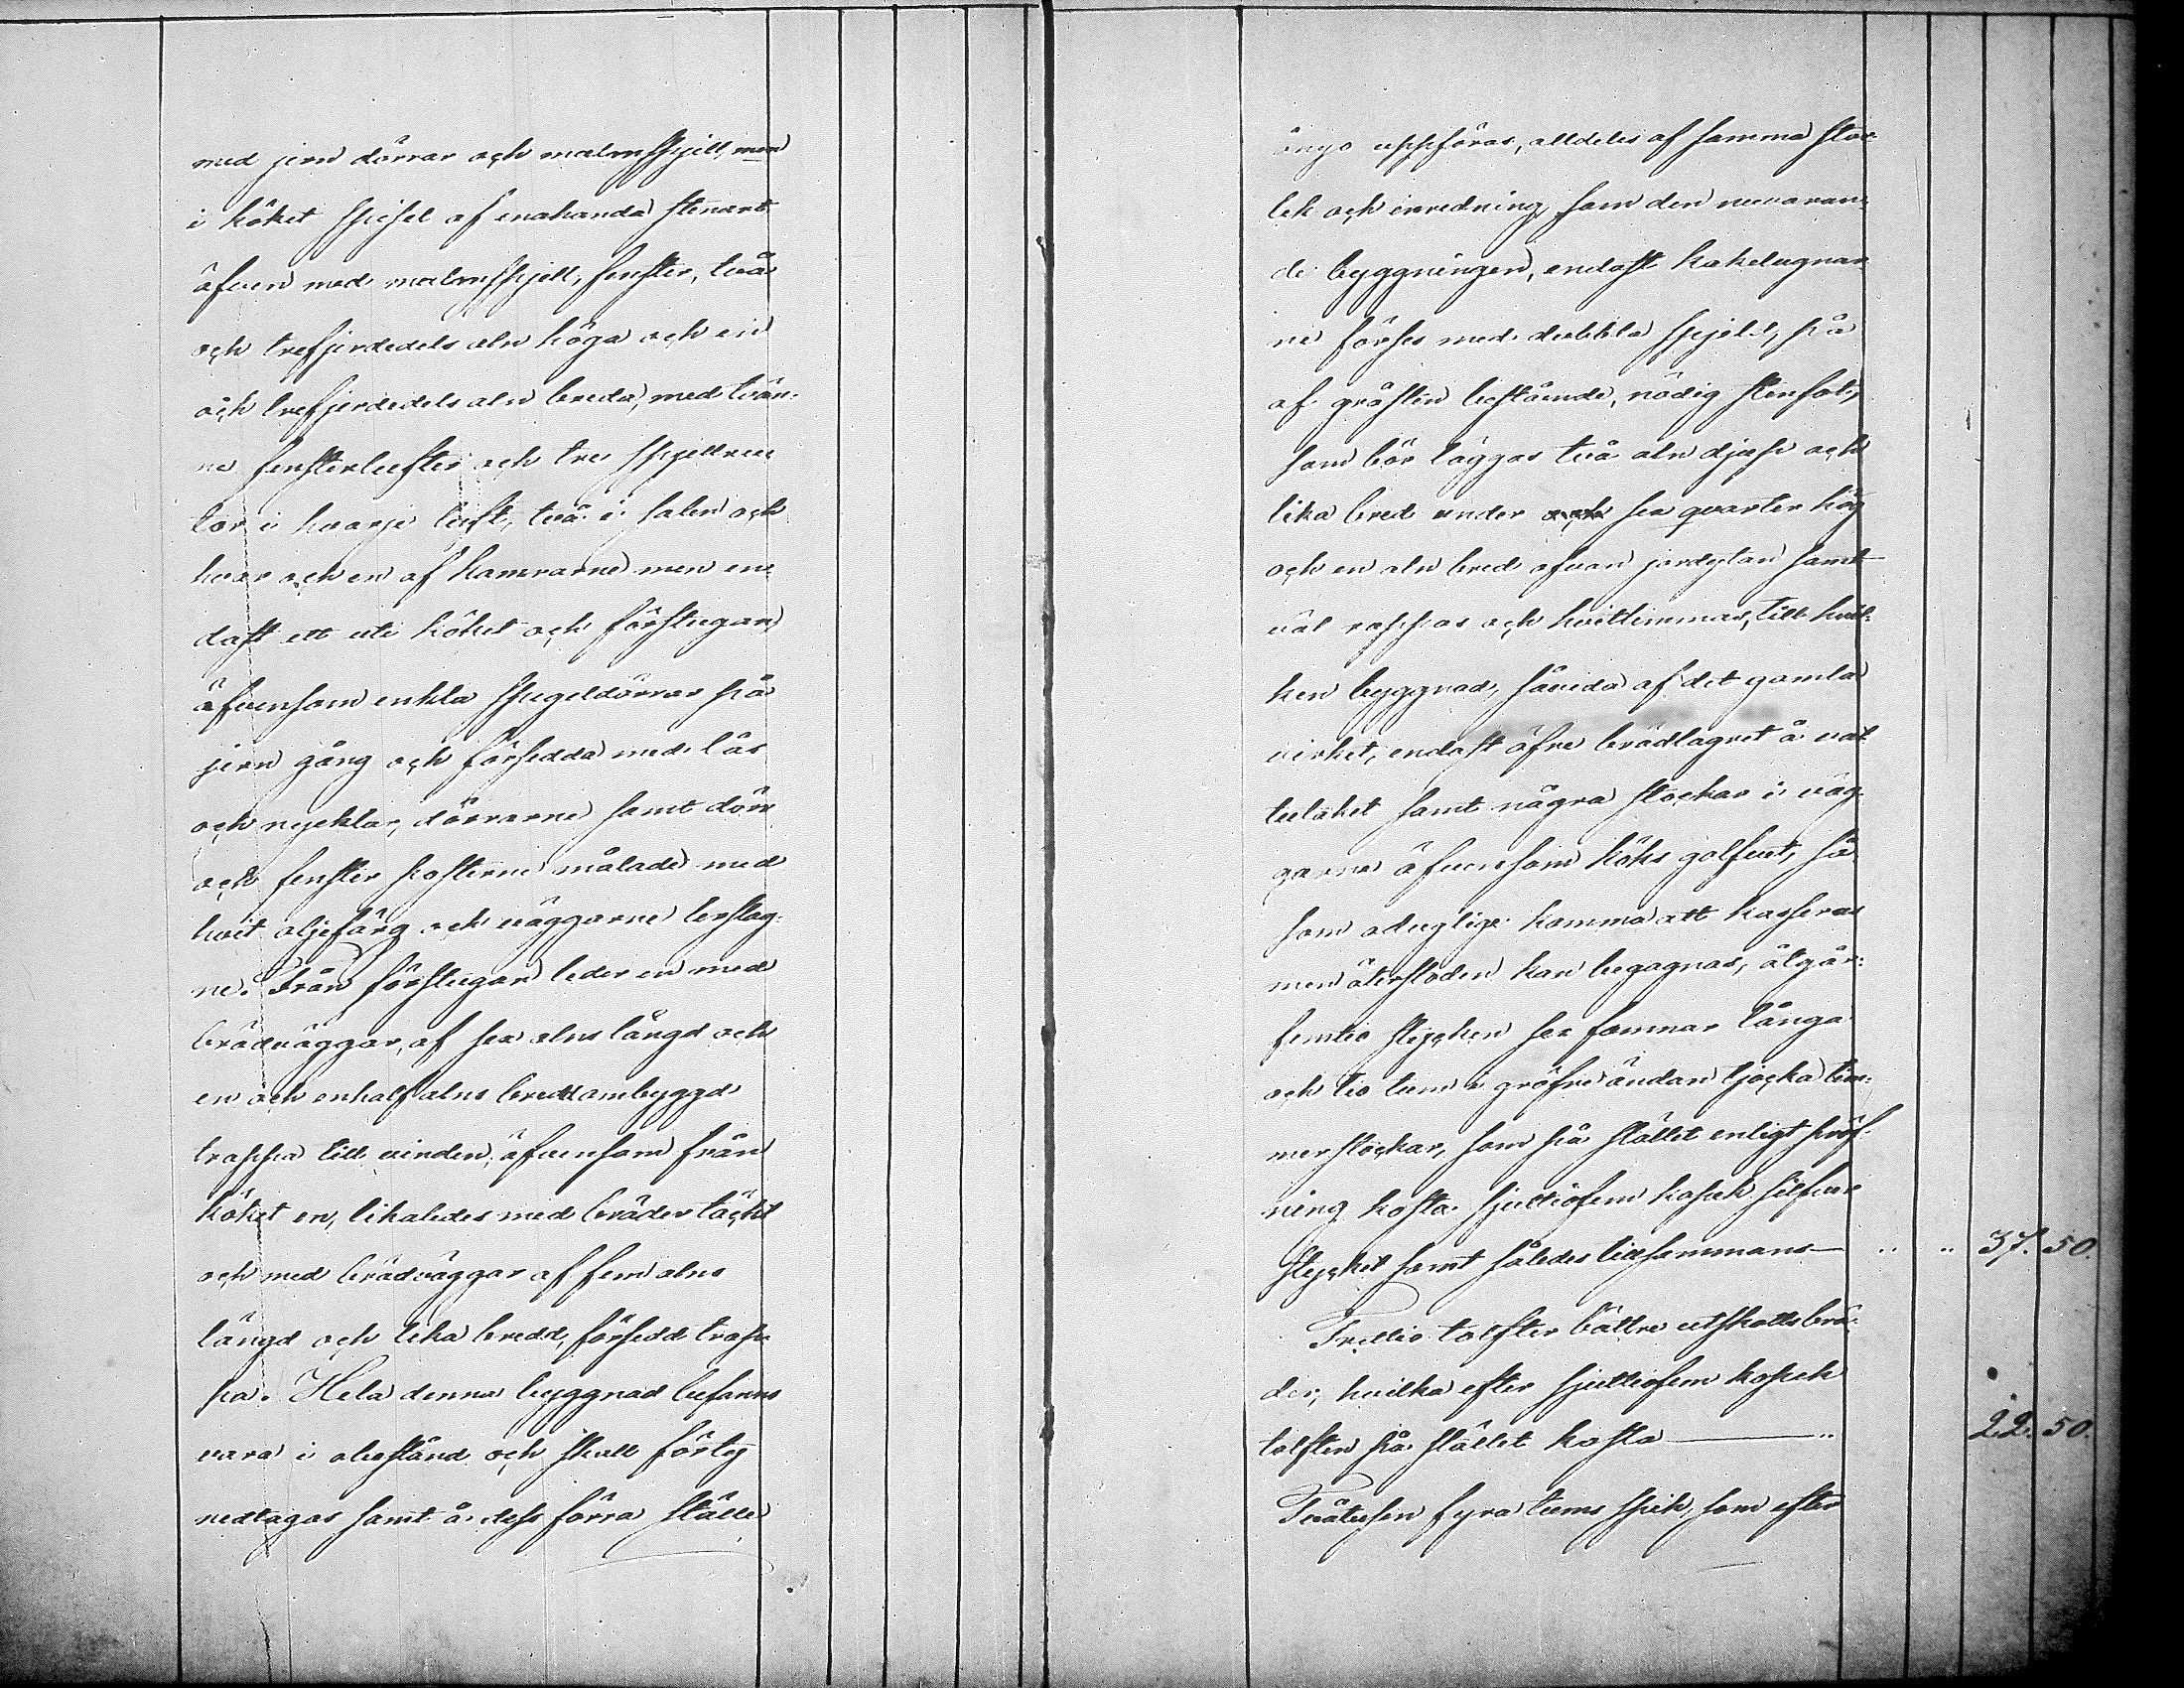 med jern dörrar och malmspjell, men
i köket spisel af enahanda stenart
äfven med malmspjell, fenster, två
och trefjerdedels aln höga och en
och trefjerdedels aln breda, med tvän-
ne fensterlufter och tre spjellru-
tor i hvarje luft, två i salen och
hvar och en af kamrarne men en-
dast ett uti köket och förstugan,
äfvensom enkla spegeldörrar på
jern gång och försedda med lås
och nycklar, dörrarne samt dörr
och fenster posterne målade med
hvit oljefärg och väggarne lerslag-
ne. Från förstugan leder en med
brädväggar, af sex alns längd och
en och enhalf alns bredd ombyggd
trappa till vinden, äfvensom från
köket en, likaledes med bräder täckt
och med brädväggar af fem alns
längd och lika bredd, försedd trap-
pa. Hela denna byggnad befanns
vara i obestånd och skall förty
nedtagas samt å dess förra ställe
ånyo uppföras, alldeles af samma stor-
lek och inredning som den nuvaran-
de byggningen, endast kakelugnar-
ne förses med dubbla spjeld, på
af gråsten bestående, nödig stenfot,
som bör läggas två aln djup och
lika bred under och sex qvarter hög
och en aln bred ofvan jordytan samt
väl rappas och hvitlimmas, till hvil-
ken byggnad, såvida af det gamla
virket, endast öfre brädlagret å vat-
tutaket samt några stockar i väg-
garne äfvensom köks golfvet, så-
som odugliga komma att kasseras
men återstoden kan begagnas, åtgår:
femtio stycken sex famnar långa
och tio tum i gröfre ändan tjocka tim-
merstockar, som på stället enligt pröf-
ning kosta sjuttiofem kopek silfver
stycket samt således tillsammans — " " 37. 50.
Trettio tolfter bättre utskottsbrä-
der, hvilka efter sjuttiofem kopek
tolften på stället kosta — " 22. 50.
Tvåtusen fyra tums spik, som efter